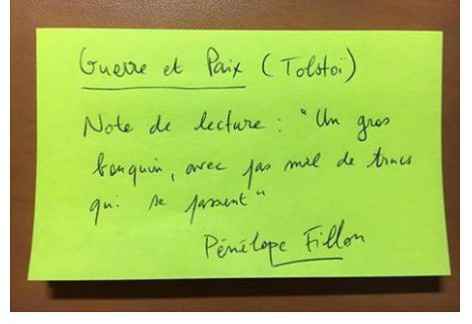 Guerre et Paix (Tolstoï)
Note de lecture : "Un gros
bouquin, avec pas mal de trucs
qui se passent"
Pénélope Fillon